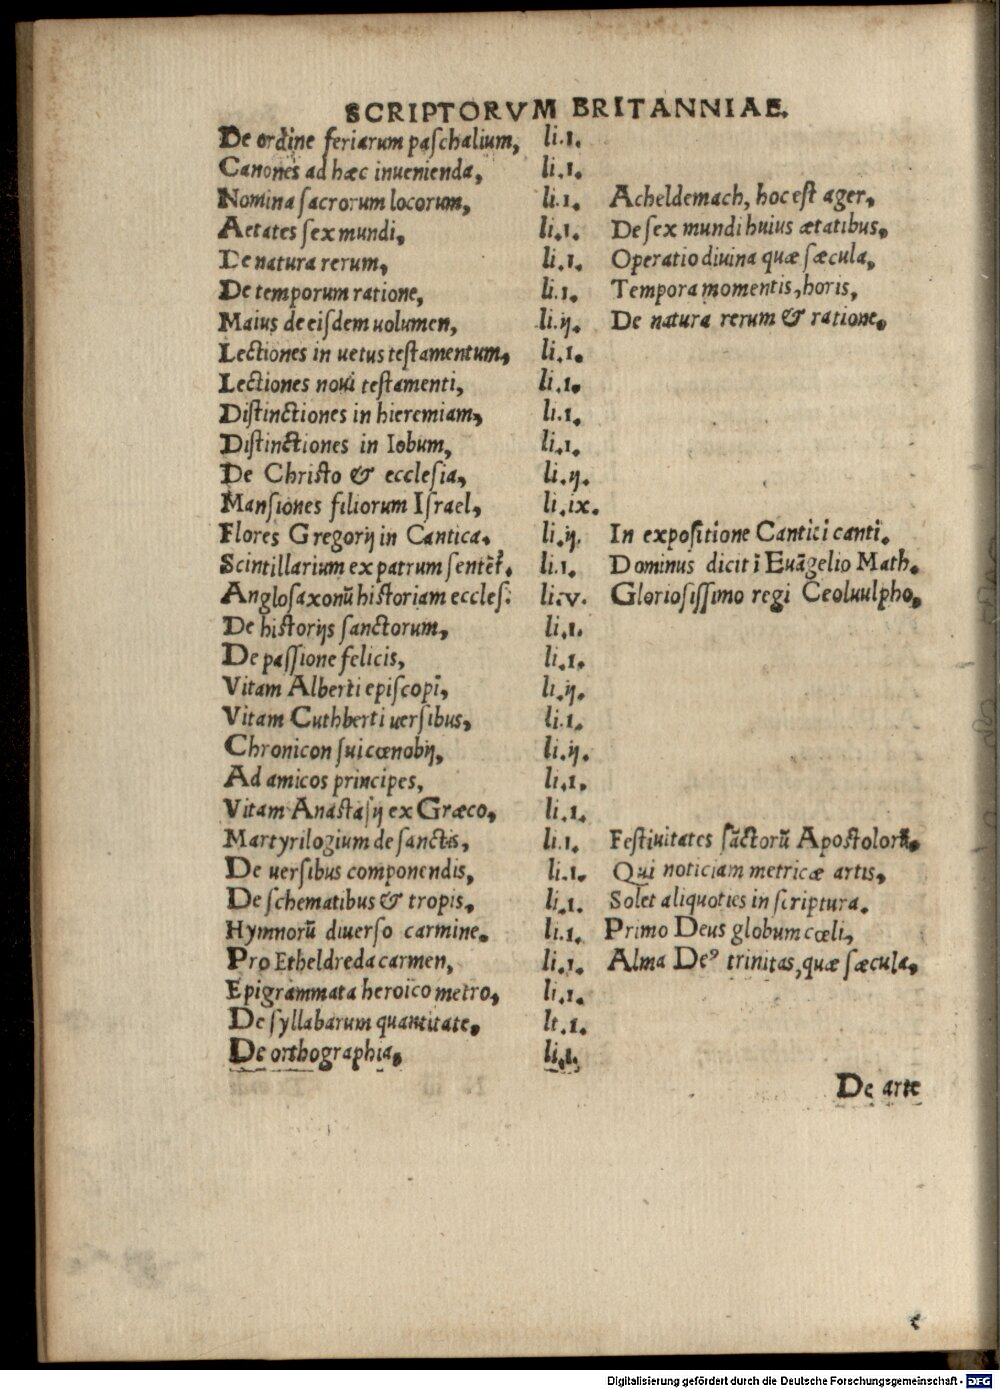 SCRIPTORVM BRITANNIAE.
De ordine feriarum paſchalium, li.1.
Canones ad hæc inuenienda, li.1.
Nomina ſacrorum locorum, li.1. Acheldemach, hoc eſt ager,
Aetates ſex mundi, li.1. De ſex mundi huius ætatibus,
De natura rerum, li.1. Operatio diuina quæ ſæcula,
De temporum ratione, li.1. Tempora momentis, horis,
Maius de eiſdem uolumen, li.ij. De natura rerum & ratione,
Lectiones in uetus teſtamentum, li.1.
Lectiones noui teſtamenti, li.1.
Diſtinctiones in hieremiam, li.1.
Diſtinctiones in Iobum, li.1.
De Chriſto & eccleſia, li.ij.
Manſiones filiorum Iſrael, li.ix.
Flores Gregorij in Cantica. li.ij. In expoſitione Cantici canti.
Scintillarium ex patrum ſentẽt. li.1. Dominus dicit ĩ Euãgelio Math.
Angloſaxonũ hiſtoriam eccleſ: li.v. Glorioſiſſimo regi Ceoluulpho,
De hiſtorijs ſanctorum, li.1.
De paſſione felicis, li.1.
Vitam Alberti epiſcopi, li.ij.
Vitam Cuthberti uerſibus, li.1.
Chronicon ſui cœnobij, li.ij.
Ad amicos principes, li.1.
Vitam Anaſtaſij ex Græco, li.1.
Martyrilogium de ſanctis, li.1. Feſtiuitates ſãctorũ Apoſtolorũ,
De uerſibus componendis, li.1. Qui noticiam metricæ artis,
De ſchematibus & tropis, li.1. Solet aliquoties in ſcriptura.
Hymnorũ diuerſo carmine. li.1. Primo Deus globum cœli,
Pro Etheldreda carmen, li.1. Alma Deꝰ trinitas, quæ ſæcula,
Epigrammata heroico metro, li.1.
De ſyllabarum quantitate, li.1.
De orthographia, li.1.
De arte
Digitalisierung gefördert durch die Deutsche Forschungsgemeinschaft - DFG